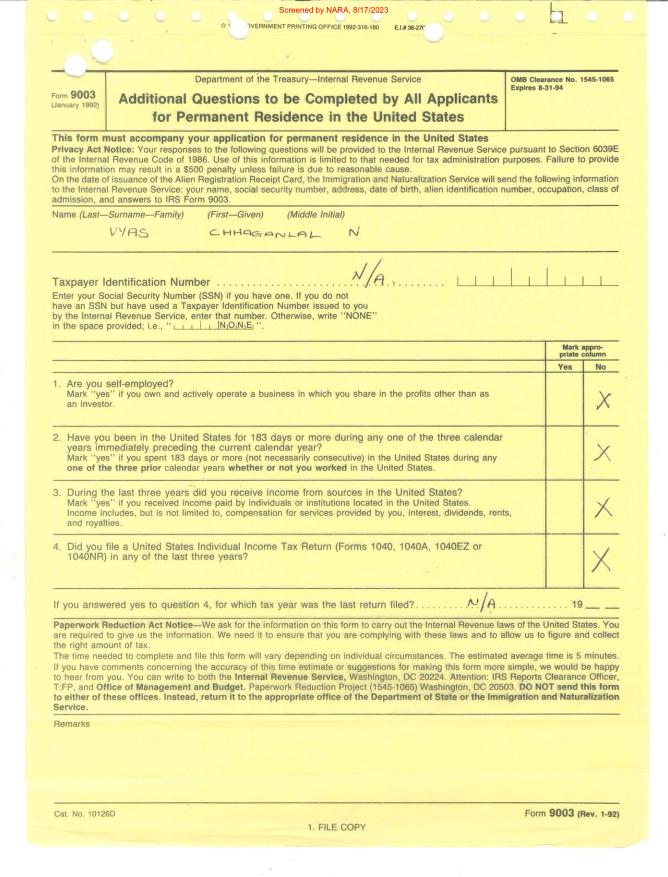 Screened by NARA, 8/17/2023
GOVERNMENT PRINTING OFFICE 1992-316-180 E.I.# 36-270
Form 9003
(January 1992)
Department of the Treasury—Internal Revenue Service
Additional Questions to be Completed by All Applicants
for Permanent Residence in the United States
OMB Clearance No. 1545-1065
Expires 8-31-94
This form must accompany your application for permanent residence in the United States
Privacy Act Notice: Your responses to the following questions will be provided to the Internal Revenue Service pursuant to Section 6039E
of the Internal Revenue Code of 1986. Use of this information is limited to that needed for tax administration purposes. Failure to provide
this information may result in a $500 penalty unless failure is due to reasonable cause.
On the date of issuance of the Alien Registration Receipt Card, the Immigration and Naturalization Service will send the following information
to the Internal Revenue Service: your name, social security number, address, date of birth, alien identification number, occupation, class of
admission, and answers to IRS Form 9003.
Name (Last—Surname—Family) (First—Given) (Middle Initial)
VYAS CHHAGANLAL N
Taxpayer Identification Number ........ N/A ........
Enter your Social Security Number (SSN) if you have one. If you do not
have an SSN but have used a Taxpayer Identification Number issued to you
by the Internal Revenue Service, enter that number. Otherwise, write "NONE"
in the space provided; i.e., " NONE ".
Mark appro-
priate column
Yes No
1. Are you self-employed?
Mark "yes" if you own and actively operate a business in which you share in the profits other than as
an investor.
X
2. Have you been in the United States for 183 days or more during any one of the three calendar
years immediately preceding the current calendar year?
Mark "yes" if you spent 183 days or more (not necessarily consecutive) in the United States during any
one of the three prior calendar years whether or not you worked in the United States.
X
3. During the last three years did you receive income from sources in the United States?
Mark "yes" if you received income paid by individuals or institutions located in the United States.
Income includes, but is not limited to, compensation for services provided by you, interest, dividends, rents,
and royalties.
X
4. Did you file a United States Individual Income Tax Return (Forms 1040, 1040A, 1040EZ or
1040NR) in any of the last three years?
X
If you answered yes to question 4, for which tax year was the last return filed? ........ N/A ........ 19__ __
Paperwork Reduction Act Notice—We ask for the information on this form to carry out the Internal Revenue laws of the United States. You
are required to give us the information. We need it to ensure that you are complying with these laws and to allow us to figure and collect
the right amount of tax.
The time needed to complete and file this form will vary depending on individual circumstances. The estimated average time is 5 minutes.
If you have comments concerning the accuracy of this time estimate or suggestions for making this form more simple, we would be happy
to hear from you. You can write to both the Internal Revenue Service, Washington, DC 20224. Attention: IRS Reports Clearance Officer,
T:FP, and Office of Management and Budget. Paperwork Reduction Project (1545-1065) Washington, DC 20503. DO NOT send this form
to either of these offices. Instead, return it to the appropriate office of the Department of State or the Immigration and Naturalization
Service.
Remarks
Cat. No. 10126D
Form 9003 (Rev. 1-92)
1. FILE COPY